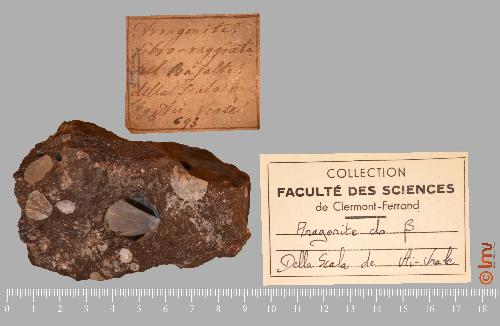 Arragonite
fibro-raggiata
nel Basalte
della Scalata
693
COLLECTION
FACULTÉ DES SCIENCES
de Clermont-Ferrand
Aragonite ds β
Della Scala de
lmv
0 1 2 3 4 5 6 7 8 9 10 11 12 13 14 15 16 17 18